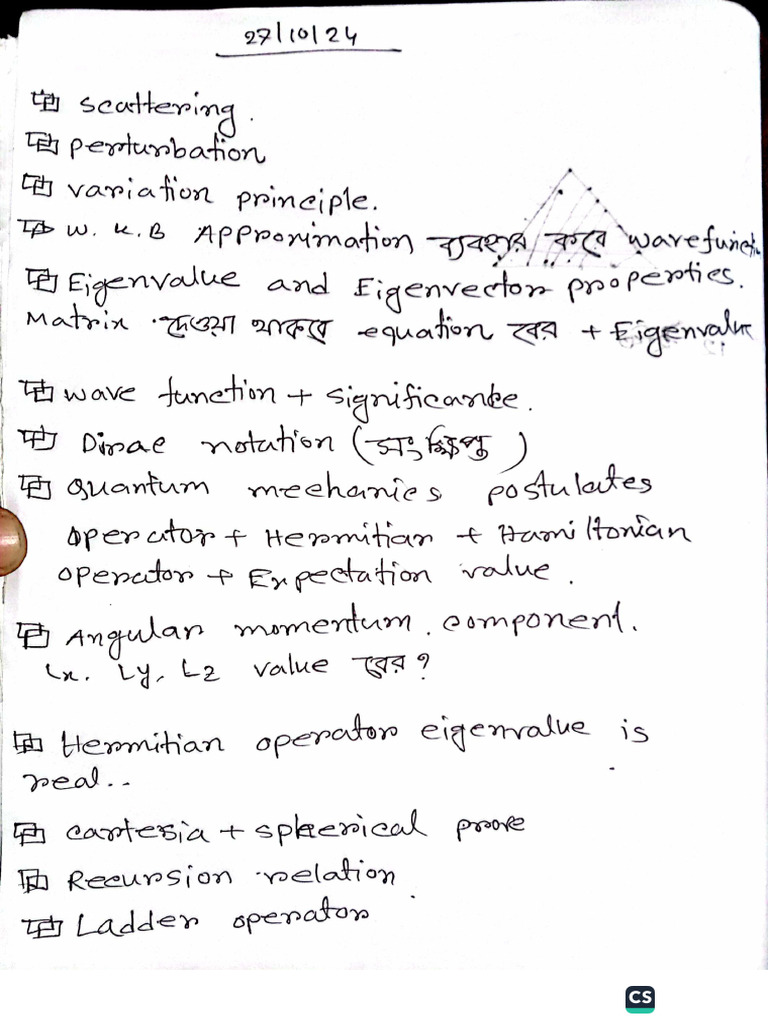 27/10/24
scattering.
perturbation
variation principle.
W.K.B Approximation ব্যবহার করে wavefunction
Eigenvalue and Eigenvector properties.
Matrix দেওয়া থাকবে equation বের + Eigenvalue
wave function + significance.
Dirac notation (সংক্ষিপ্ত)
Quantum mechanics postulates
operator + Hermitian + Hamiltonian
operator + Expectation value.
Angular momentum. component.
Lx. Ly, Lz value বের?
Hermitian operator eigenvalue is
real..
cartesia + spherical prove
Recursion relation
Ladder operator
CS